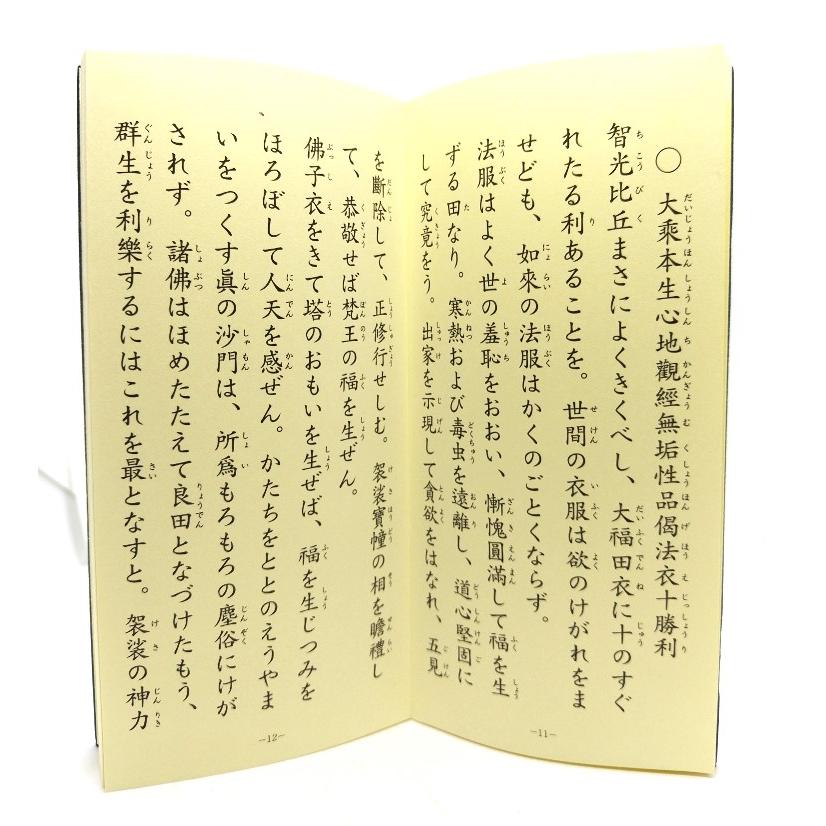 〇 大乘本生心地觀經無垢性品偈法衣十勝利
智光比丘まさによくきくべし、大福田衣に十のすぐ
れたる利あることを。世間の衣服は欲のけがれをま
せども、如來の法服はかくのごとくならず。
法服はよく世の羞恥をおおい、慚愧圓滿して福を生
ずる田なり。寒熱および毒虫を遠離し、道心堅固に
して究竟をう。出家を示現して貪欲をはなれ、五見
—11—
を斷除して、正修行せしむ。袈裟寶幢の相を瞻禮し
て、恭敬せば梵王の福を生ぜん。
佛子衣をきて塔のおもいを生ぜば、福を生じつみを
ほろぼして人天を感ぜん。かたちをととのえうやま
いをつくす眞の沙門は、所爲もろもろの塵俗にけが
されず。諸佛はほめたたえて良田となづけたもう、
群生を利樂するにはこれを最となすと。袈裟の神力
—12—